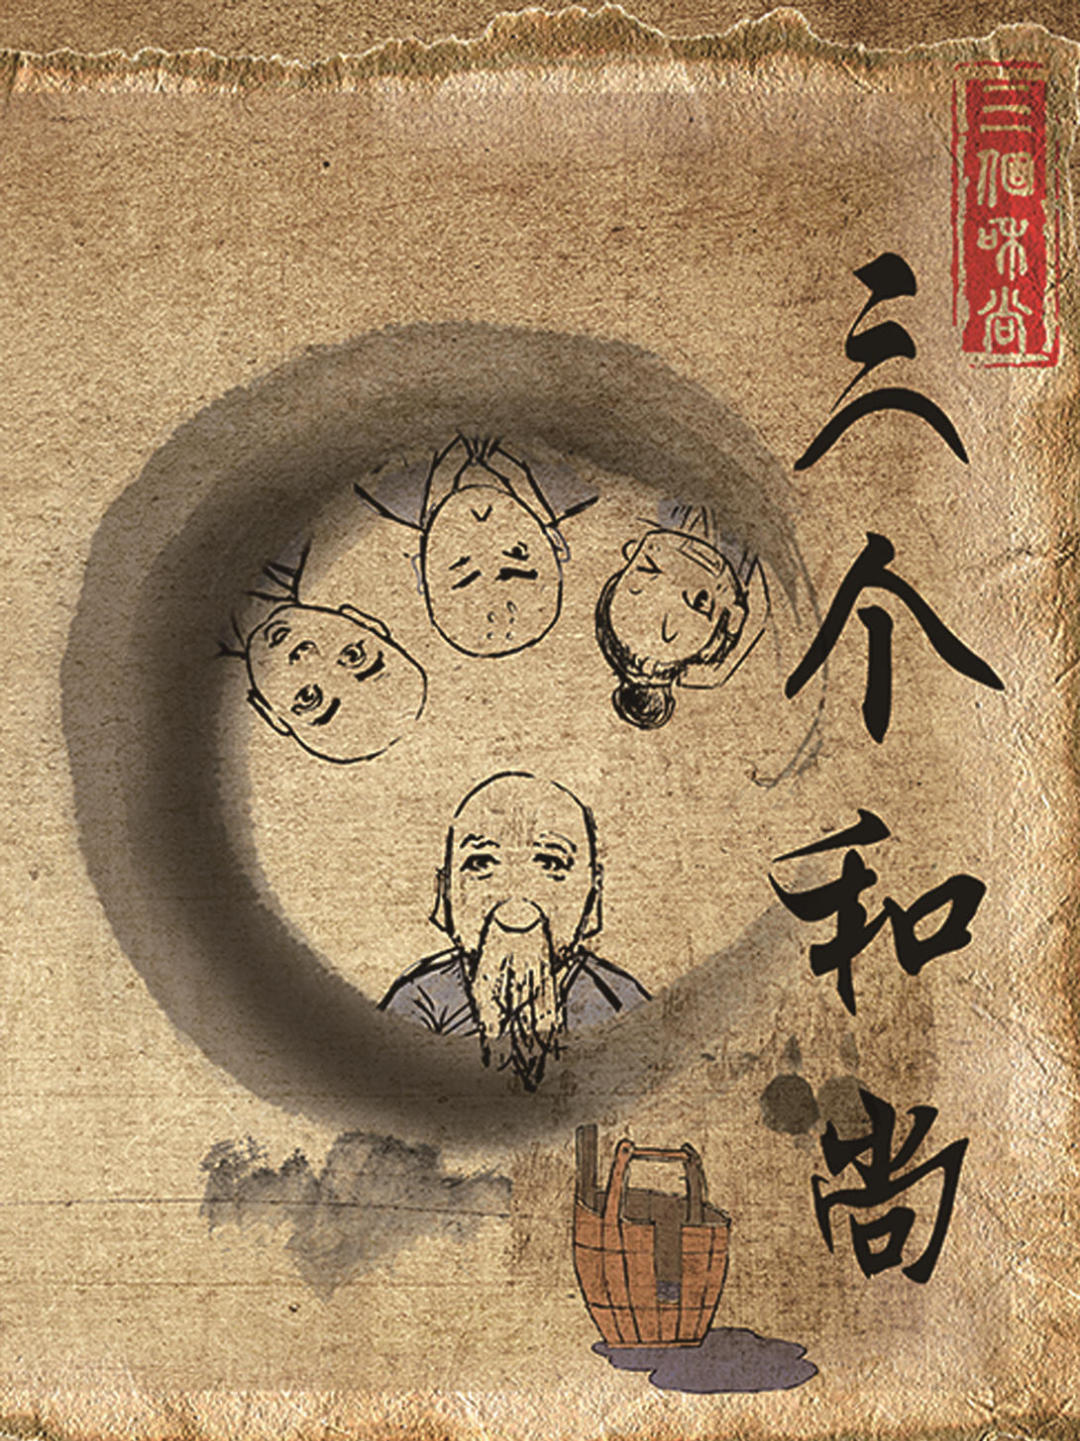 三個和尚
三个和尚